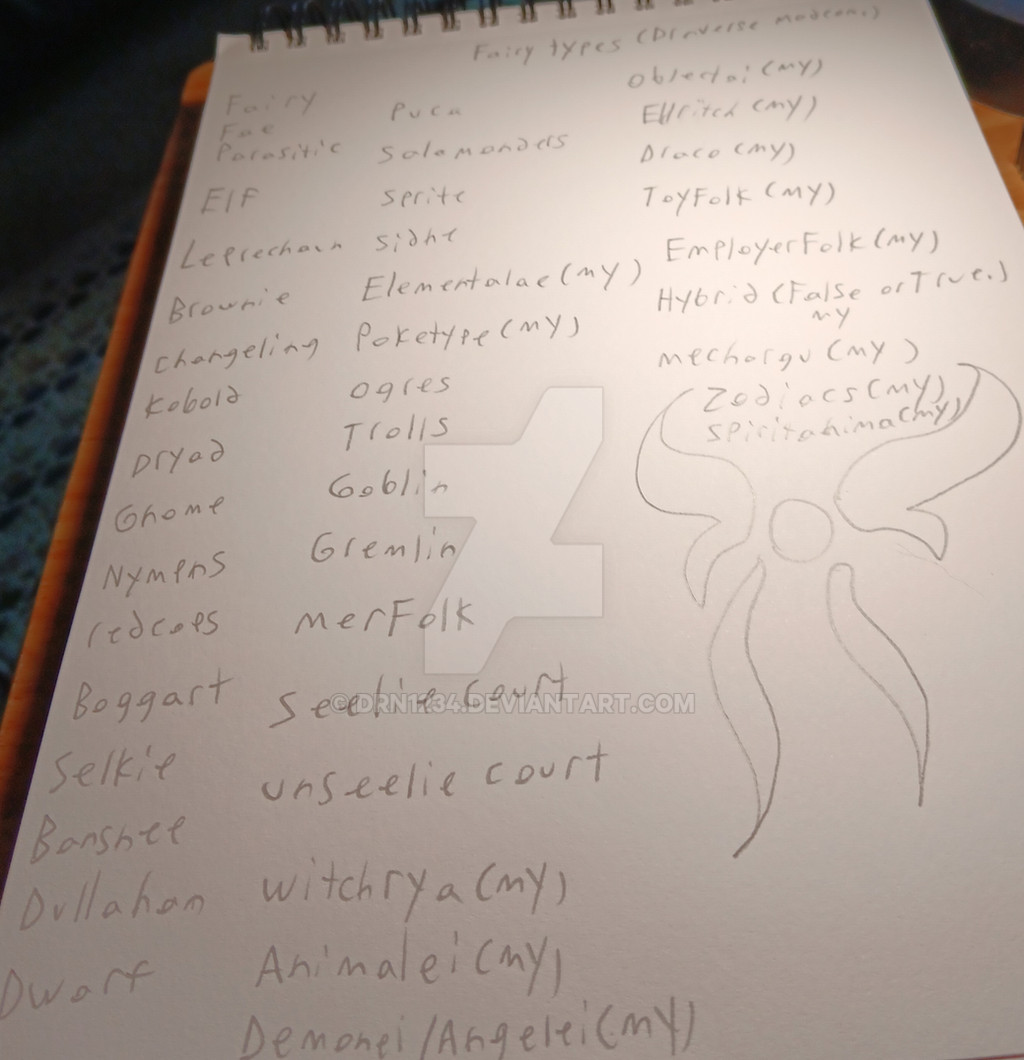 Fairy types (Diaverse modeon.)
Fairy
Fae
Parasitic
Elf
Leprechaun
Brownie
changeling
Kobold
Dryad
Gnome
Nymphs
redcaps
Boggart
Selkie
Banshee
Dullahan
Dwarf
Puca
Salamanders
Sprite
Sidhe
Elementalae (my)
Poketype (my)
Ogres
Trolls
Goblin
Gremlin
merfolk
Seelie court
unseelie court
witchrya (my)
Animalei (my)
Demonei/Angelei (my)
Oblectai (my)
Elfritch (my)
Draco (my)
ToyFolk (my)
EmployerFolk (my)
Hybrid (False or True.)
my
mechorgu (my)
Zodiacs (my)
Spiritanima (my)
© IDRN1234.DEVIANTART.COM